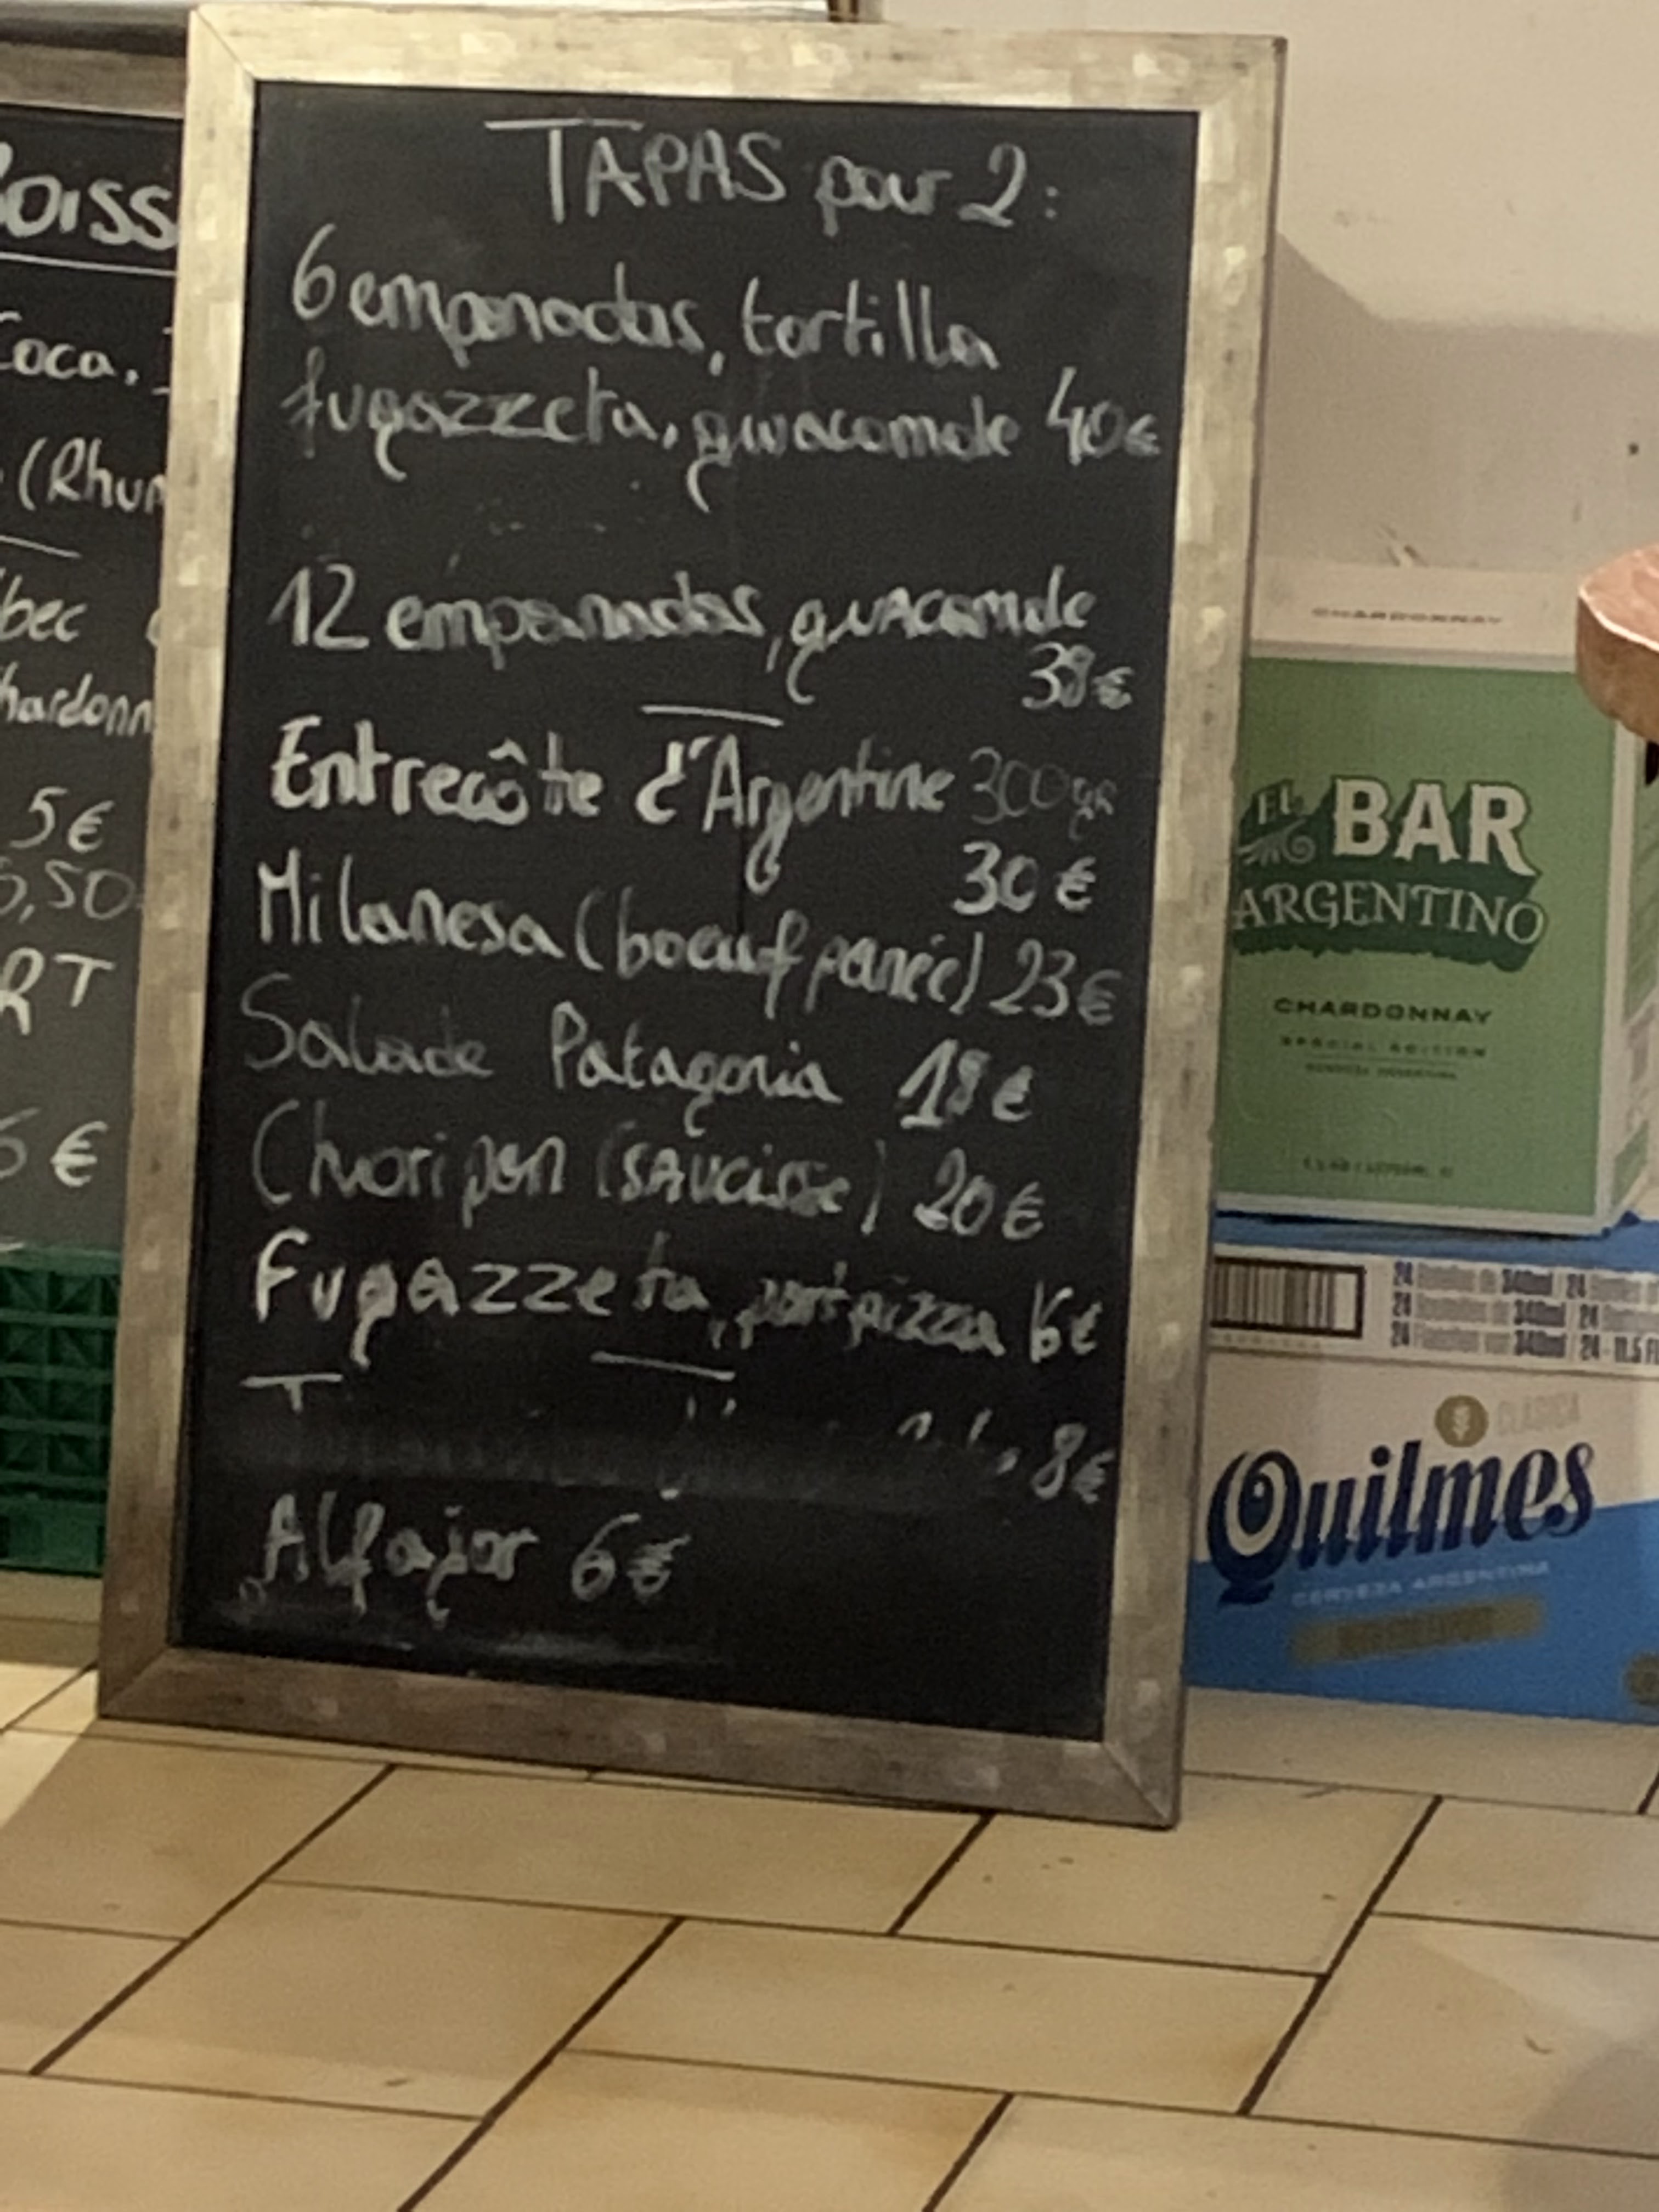 TAPAS pour 2:
6 empanadas, tortilla
fugazzeta, guacamole 40€
12 empanadas, guacamole
38€
Entrecôte d'Argentine 300gr
30€
Milanesa (boeuf panée) 23€
Salade Patagonia 18€
Choripan (SAUCISSE) 20€
Fugazzeta, part pizza 16€
8€
Alfajor 6€
OISS
Coca.
(Rhum
bec
hardonn
5€
6,50
RT
6€
CHARDONNAY
EL BAR
ARGENTINO
CHARDONNAY
SPECIAL EDITION
24 340ml 24
24 340ml 24
24 340ml 24 - 11.5 FL
CLASICA
Quilmes
CERVEZA ARGENTINA